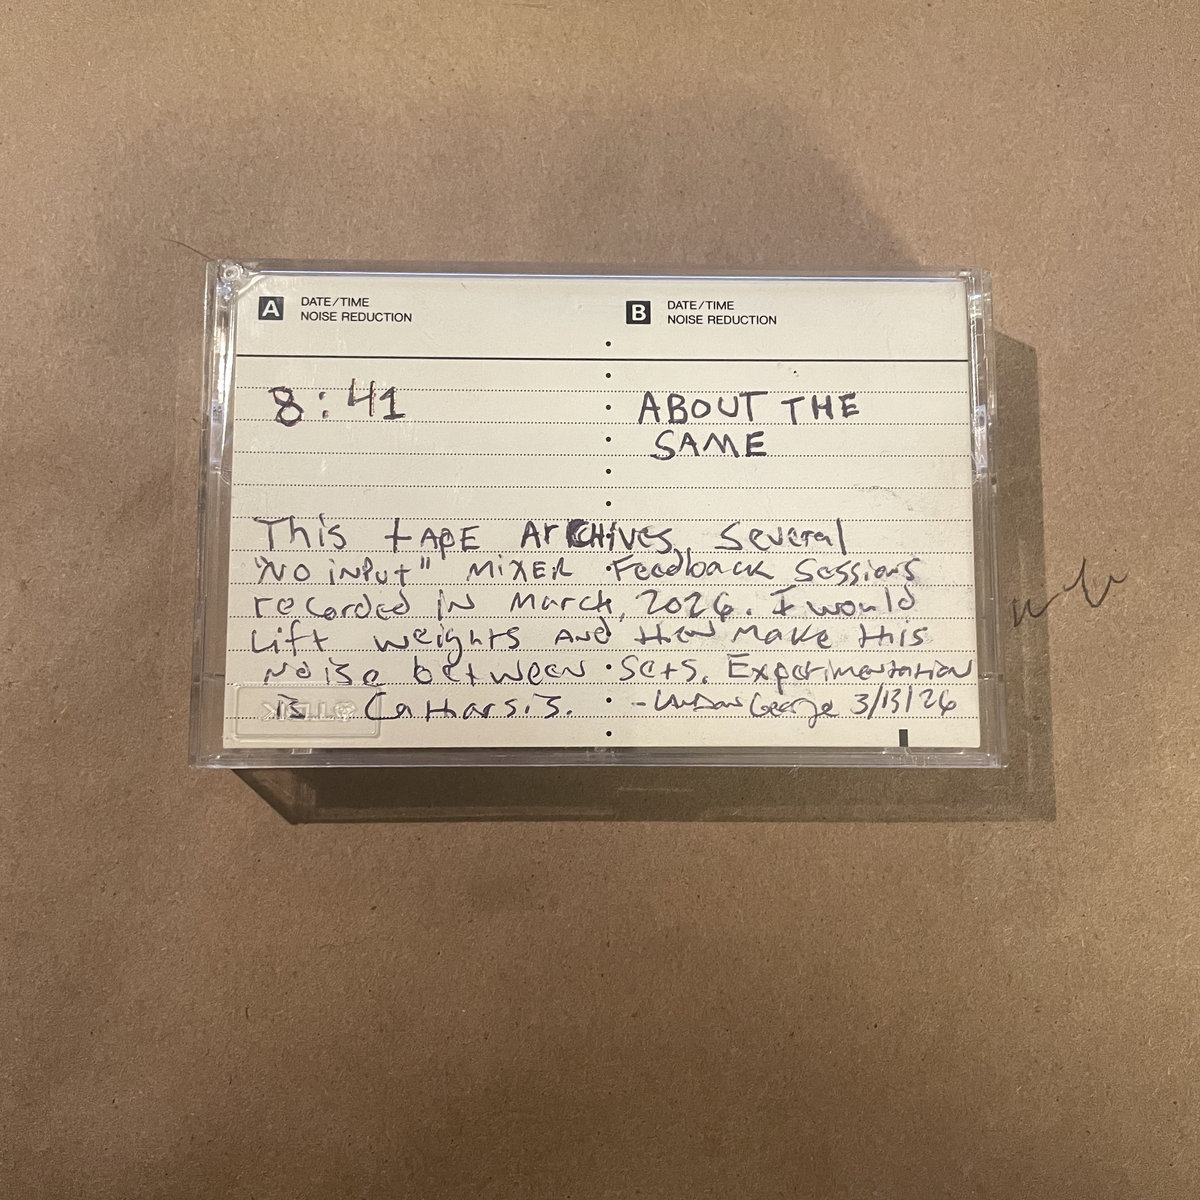 A DATE/TIME
NOISE REDUCTION
B DATE/TIME
NOISE REDUCTION
8:41
ABOUT THE
SAME
This tAPE ArCHIVES several
"NO iNPut" MiXER Feedback Sessions
recorded iN March, 2026. I would
Lift weights AND then make this
Noise between sets. Experimentation
is Catharsis. - George 3/13/26